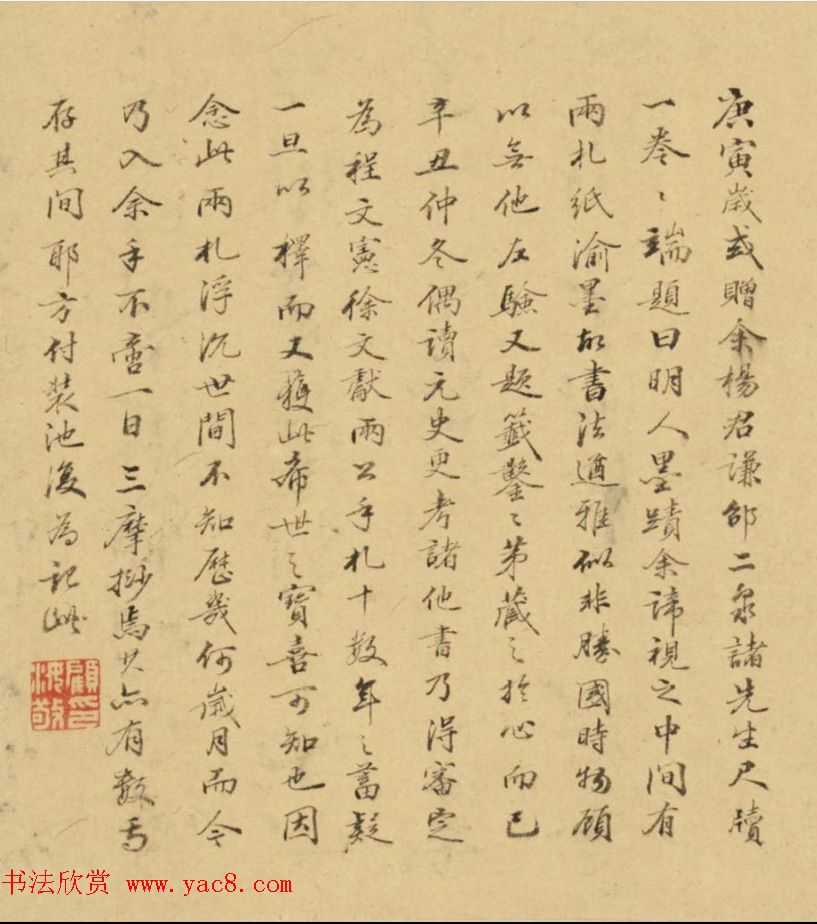 庚寅歲或贈余楊君謙邵二泉諸先生尺牘
一卷〻端題曰明人墨蹟余諦視之中間有
兩札紙渝墨故書法遒雅似非勝國時物顧
以無他左驗又題籤鑿〻第藏之於心而已
辛丑仲冬偶讀元史更考諸他書乃得審定
為程文憲徐文獻兩公手札十數年之蓄疑
一旦以釋而又獲此希世之寶喜可知也因
念此兩札浮沉世間不知歷幾何歲月而今
乃入余手不啻一日三摩挱焉其亦有數焉
存其間耶方付裝池復為記此
顧印
書法欣赏 www.yac8.com